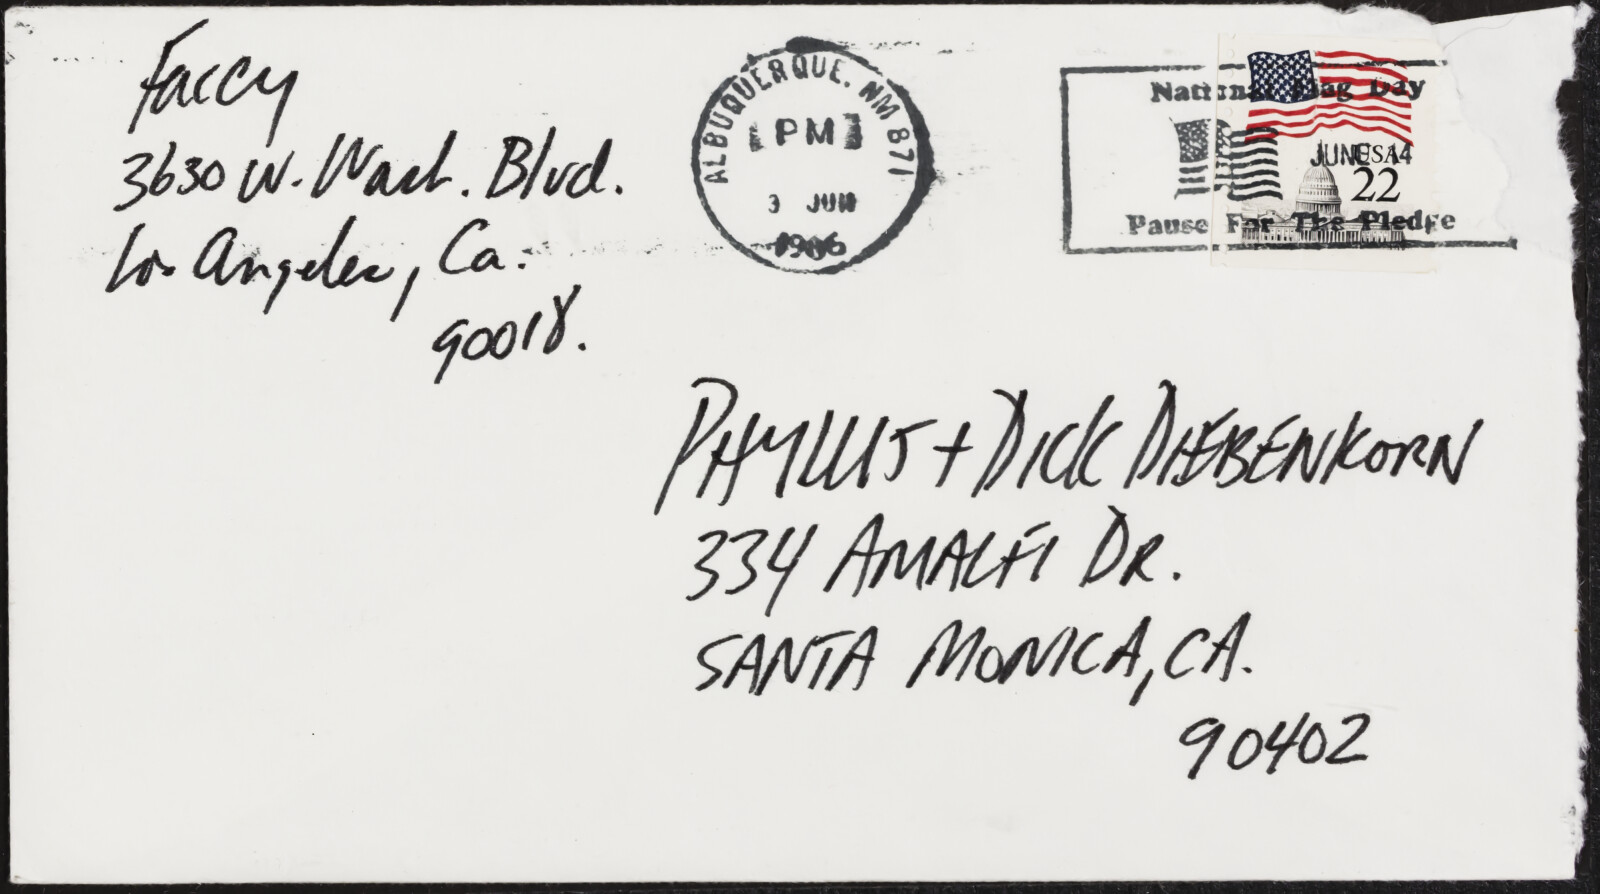 Faccy
3630 W. Wash. Blvd.
Los Angeles, Ca.
90018.
ALBUQUERQUE, NM 871
PM
3 JUN
1986
National Flag Day
JUNE 14
USA
22
Pause For The Pledge
PHYLLIS + DICK DIEBENKORN
334 AMALFI DR.
SANTA MONICA, CA.
90402